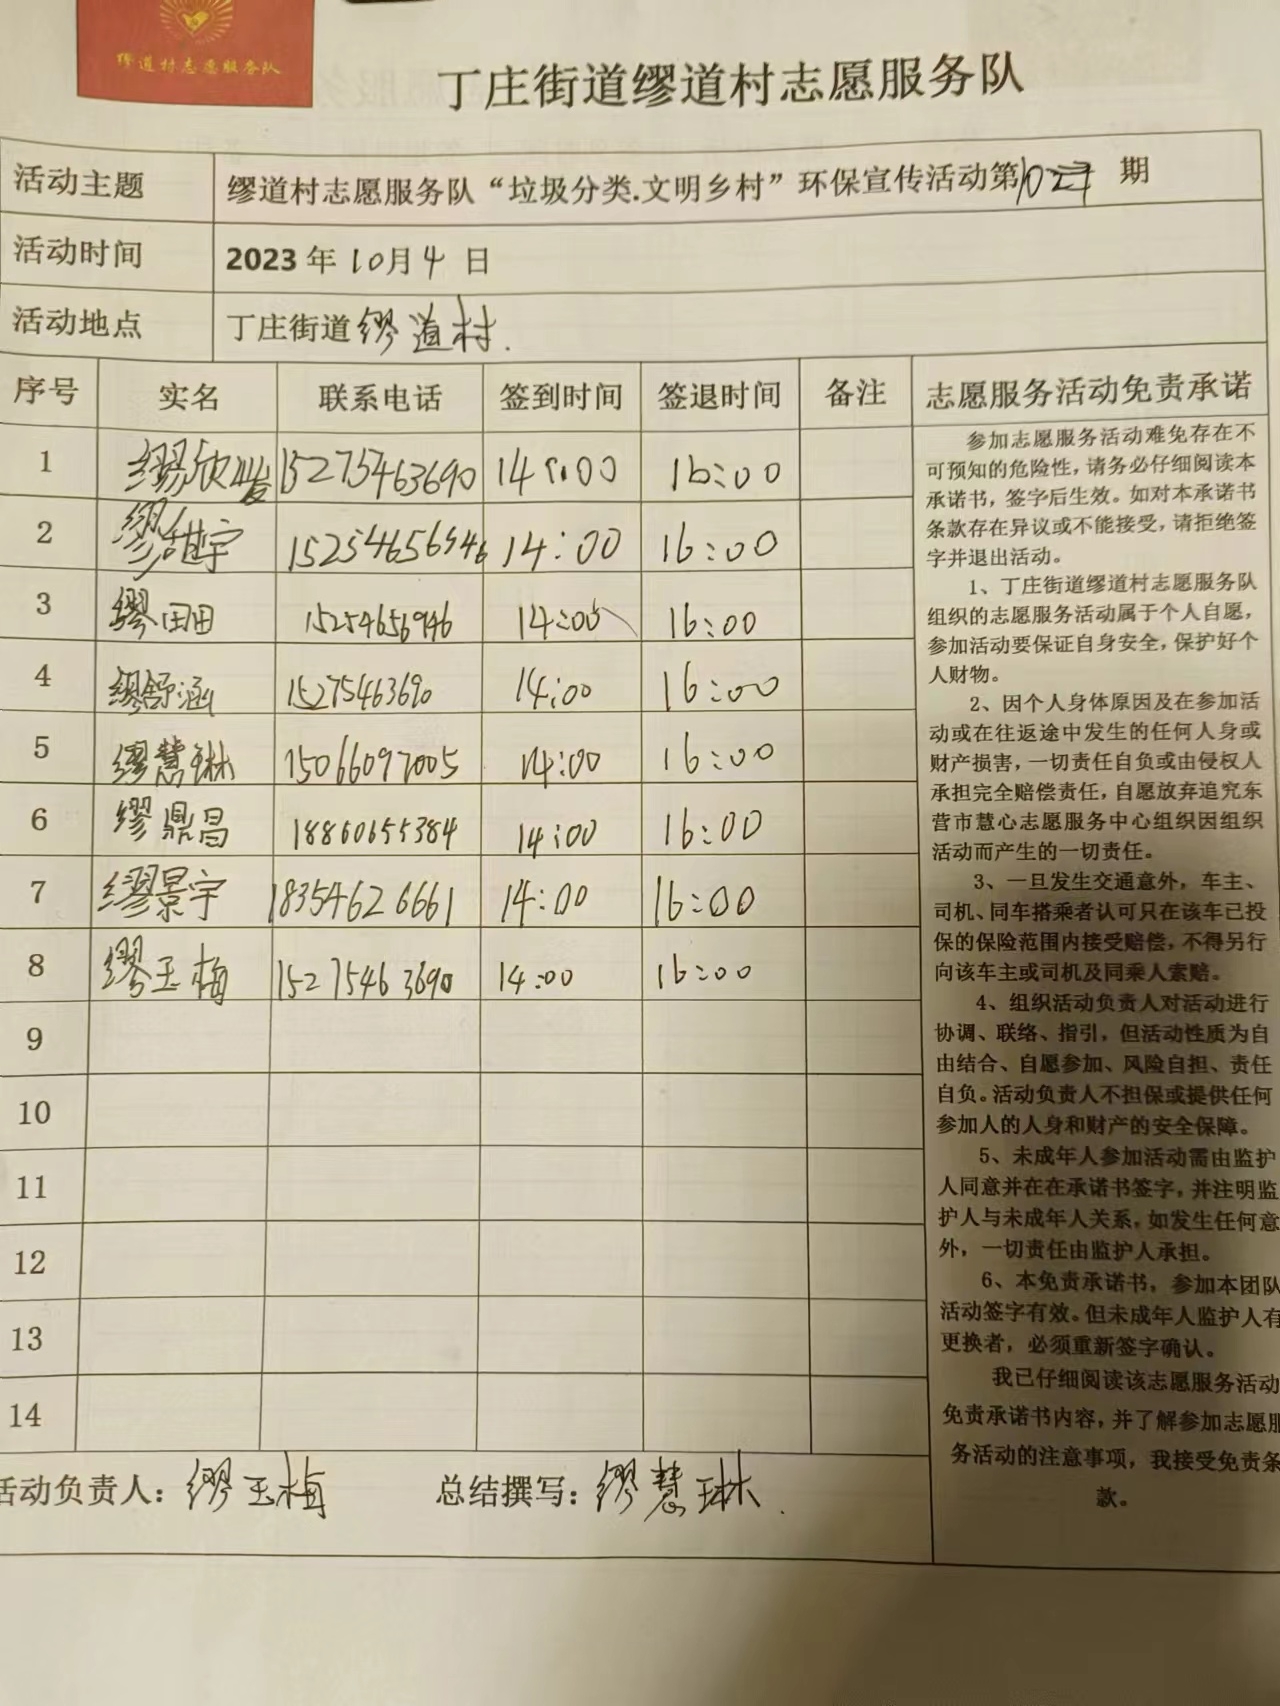 缪道村志愿服务队
丁庄街道缪道村志愿服务队
活动主题 缪道村志愿服务队“垃圾分类.文明乡村”环保宣传活动第 期
活动时间 2023 年 10月 4 日
活动地点 丁庄街道缪道村.
序号 实名 联系电话 签到时间 签退时间 备注 志愿服务活动免责承诺
1 缪欣 15275463690 14:00 16:00
2 缪甜宇 15254656946 14:00 16:00
3 缪田田 15254656946 14:00 16:00
4 缪舒涵 15275463690 14:00 16:00
5 缪慧琳 15066097005 14:00 16:00
6 缪鼎昌 18860655384 14:00 16:00
7 缪景宇 18354626661 14:00 16:00
8 缪玉梅 15275463690 14:00 16:00
9
10
11
12
13
14
参加志愿服务活动难免存在不
可预知的危险性，请务必仔细阅读本
承诺书，签字后生效。如对本承诺书
条款存在异议或不能接受，请拒绝签
字并退出活动。
1、丁庄街道缪道村志愿服务队
组织的志愿服务活动属于个人自愿，
参加活动要保证自身安全，保护好个
人财物。
2、因个人身体原因及在参加活
动或在往返途中发生的任何人身或
财产损害，一切责任自负或由侵权人
承担完全赔偿责任，自愿放弃追究东
营市慧心志愿服务中心组织因组织
活动而产生的一切责任。
3、一旦发生交通意外，车主、
司机、同车搭乘者认可只在该车已投
保的保险范围内接受赔偿，不得另行
向该车主或司机及同乘人索赔。
4、组织活动负责人对活动进行
协调、联络、指引，但活动性质为自
由结合、自愿参加、风险自担、责任
自负。活动负责人不担保或提供任何
参加人的人身和财产的安全保障。
5、未成年人参加活动需由监护
人同意并在在承诺书签字，并注明监
护人与未成年人关系，如发生任何意
外，一切责任由监护人承担。
6、本免责承诺书，参加本团队
活动签字有效。但未成年人监护人有
更换者，必须重新签字确认。
我已仔细阅读该志愿服务活动
免责承诺书内容，并了解参加志愿服
务活动的注意事项，我接受免责条
款。
活动负责人：缪玉梅 总结撰写：缪慧琳.